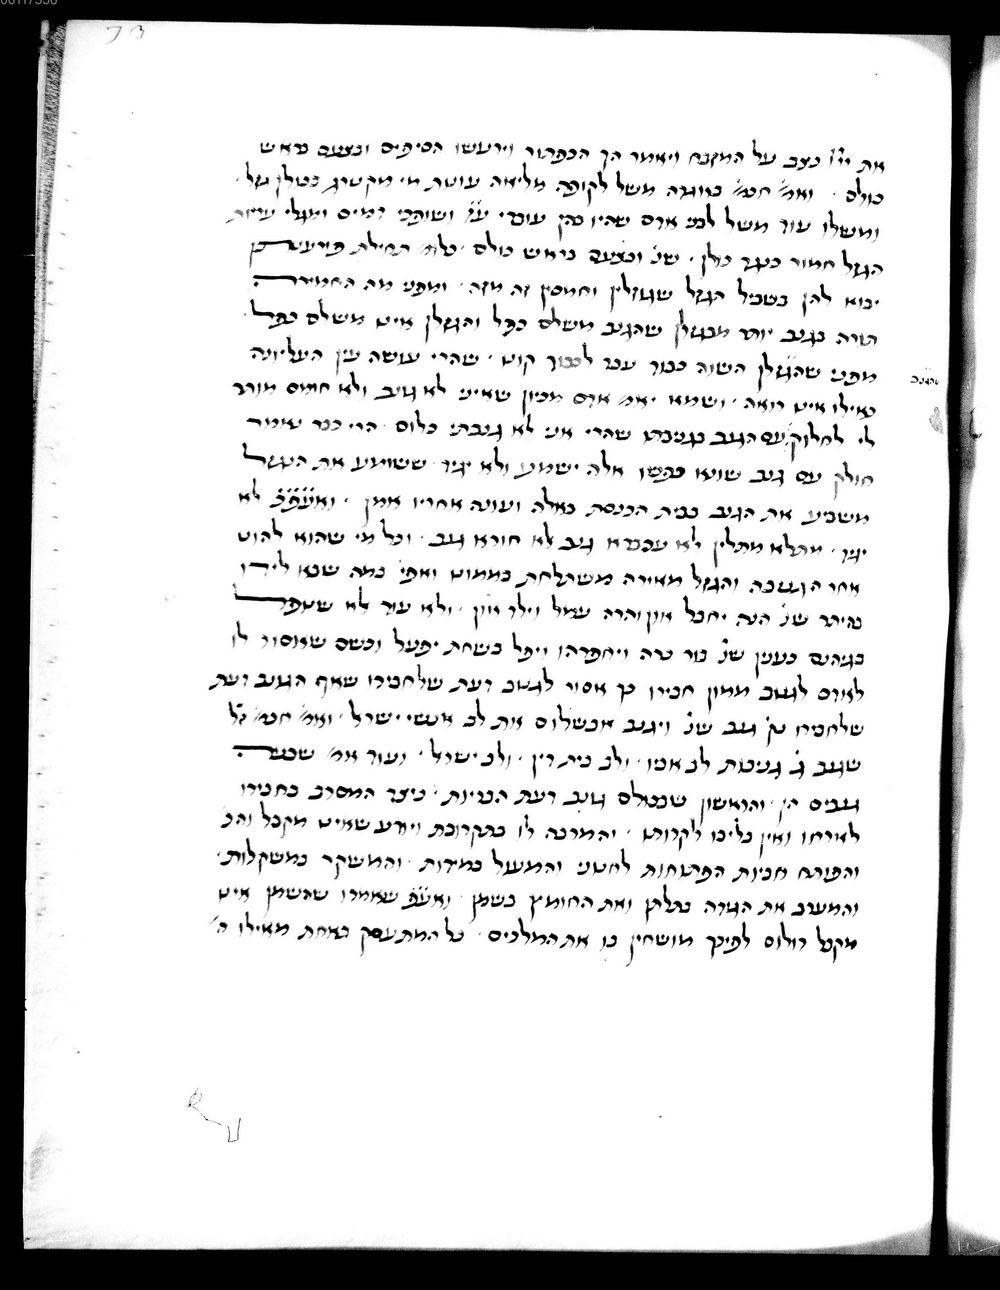 את ייי נצב על המזבח ויאמר הך הכפתור וירעשו הסיפים ובצעם בראש
כולם · ואמ׳ חכמ׳ בזוגרה משל לקופה מליאה עונות מי מקטרג בכולן גזל ·
ומשלו עוד משל לבני אדם שהיו בהן עובדי ע׳ז ושופכי דמים ומגלי עריות
הגזל חמור כנגד כולן · שנ׳ ובצעם בראש כולם · כלו׳ תחילת פורענותן
יבוא להן בשביל הגזל שגוזלין וחומסין זה מזה · ומפני מה החמירה
תורה בגנב יותר מבגזלן שהגנב משלם כפל והגזלן אינו משלם כפל
מפני שהגזלן השוה כבוד עבד לכבוד קונו · שהרי עושה עין העליונה
כאילו אינו רואה · ושמא יאמ׳ אדם מכיון שאיני לא גונב ולא חומס מותר
לי לחלוק עם הגנב בגניבתו שהרי אני לא גנבתי כלום · הרי כבר נאמר
חולק עם גנב שונא נפשו אלה ישמע ולא יגיד · ששומע את הנגזל
משביע את הגנב בבית הכנסת באלה ועונה אחריו אמן · ואעפ״כ לא
יגיד · מתלא מתלין לא עכברא גנב לא חורא גנב · וכל מי שהוא להוט
אחר הגניבה והגזל מאירה משתלחת בממונו ואפי׳ במה שבא לידו
בהיתר שנ׳ הנה יחבל און והרה עמל וילד און · ולא עוד לא שנופל
בגיהנם כענין שנ׳ בור כרה ויחפרהו ויפל בשחת יפעל וכשם שאסור לו
לאדם לגנוב ממון חבירו כך אסור לגנוב דעת שלחבירו שאף הגונב דעת
שלחבירו נק׳ גנב שנ׳ ויגנב אבשלום את לב אנשי ישראל · ואמ׳ חכמ׳ ז״ל
שגנב ג׳ גניבות לב אביו · ולב בית דין · ולב ישראל · ועוד אמ׳ שבעה
גנבים הן · והראשון שבכולם גונב דעת הבריות · כיצד המסרב בחבירו
לארחו ואין בליבו לקרותו · והמרבה לו בתקרובת ויודע שאינו מקבל והכ׳
והפותח חביות הפתוחות לחנוני והמעול במידות · והמשקר במשקלות ·
והמערב את הגרה בתלתן ואת החומץ בשמן · ואעפ״י שאמרו שהשמן אינו
מקבל דולוס לפיכך מושחין בו את המלכים · כל המתעסק באחת מאילו ה׳